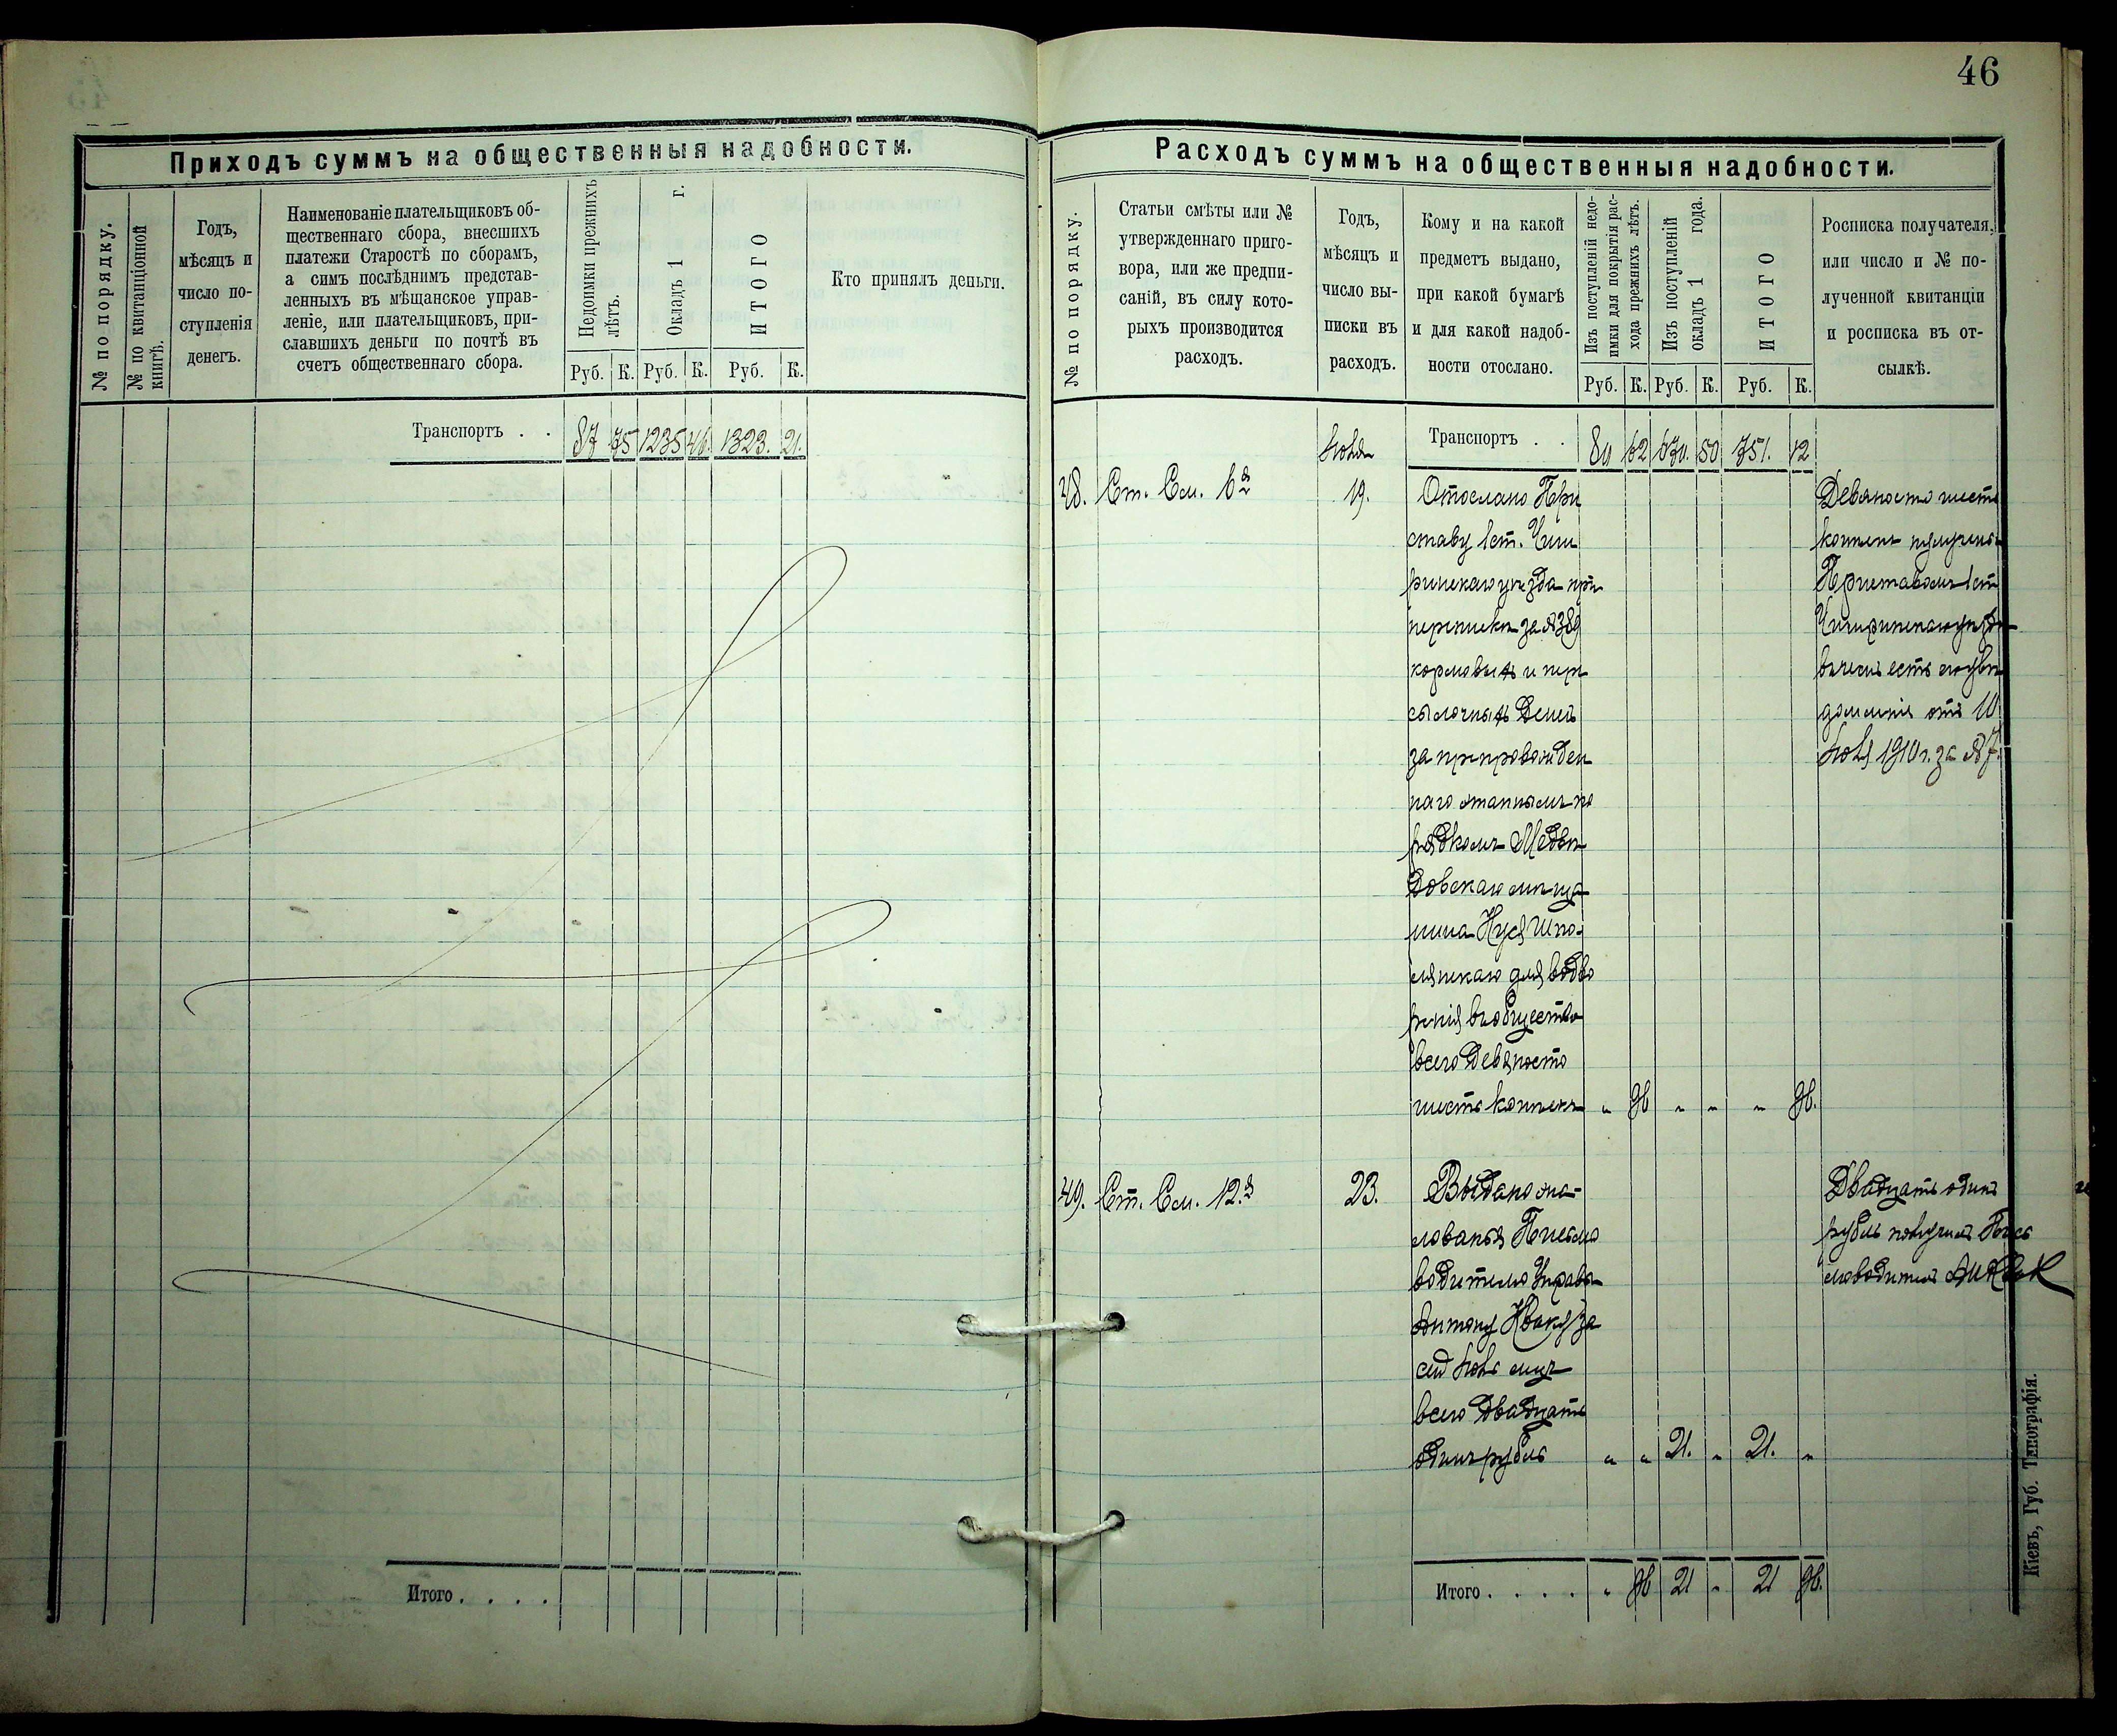 46
Приходъ суммъ на общественныя надобности.
№ по порядку.
№ по квитанціонной книгѣ.
Годъ,
мѣсяцъ и
число по-
ступленія
денегъ.
Наименованіе плательщиковъ об-
щественнаго сбора, внесшихъ
платежи Старостѣ по сборамъ,
а симъ послѣднимъ представ-
ленныхъ въ мѣщанское управ-
леніе, или плательщиковъ, при-
славшихъ деньги по почтѣ въ
счетъ общественнаго сбора.
Недоимки прежнихъ
лѣтъ.
Окладъ 1 г.
ИТОГО
Руб. К. Руб. К. Руб. К.
Кто принялъ деньги.
Транспортъ . . 87 75 1235 46. 1323. 21.
Итого . . . .
Расходъ суммъ на общественныя надобности.
№ по порядку.
Статьи смѣты или №
утвержденнаго приго-
вора, или же предпи-
саній, въ силу кото-
рыхъ производится
расходъ.
Годъ,
мѣсяцъ и
число вы-
писки въ
расходъ.
Кому и на какой
предметъ выдано,
при какой бумагѣ
и для какой надоб-
ности отослано.
Изъ поступленій недо-
имки для покрытія рас-
хода прежнихъ лѣтъ.
Изъ поступленій
окладъ 1 года.
ИТОГО
Руб. К. Руб. К. Руб. К.
Росписка получателя,
или число и № по-
лученной квитанціи
и росписка въ от-
сылкѣ.
Іюля Транспортъ . . 80 62 670. 50 751. 12
48. Ст. См. 6я 19.
Отослано При
ставу 1 ст. Чиги
ринскаго уѣзда при
перепискѣ за № 389
кормовыхъ и пере
сылочныхъ денегъ
за препровожден
наго этапнымъ по
рядкомъ Медвѣ
довскаго мѣща
нина Нуся Шпо-
лянскаго для водво
ренія въ общество
всего девяносто
шесть копѣекъ „ 96 „ „ „ 96.
Девяносто шесть
копѣекъ получены
Приставомъ 1 ст
Чигиринскаго уѣзда
въ чемъ есть увѣ
домленіе отъ 10
Іюля 1910 г. за № 7.
49. Ст. См. 12.я 23.
Выдано жа-
лованья Письмо
водителю Управы
Антону Кваку за
сей Іюль мцъ
всего двадцать
одинъ рубль „ „ 21. „ 21. „
Двадцать одинъ
рубль получилъ Пись
моводитель А. Квак
Итого . . . . „ 96 21 „ 21 96.
Кіевъ, Губ. Типографія.